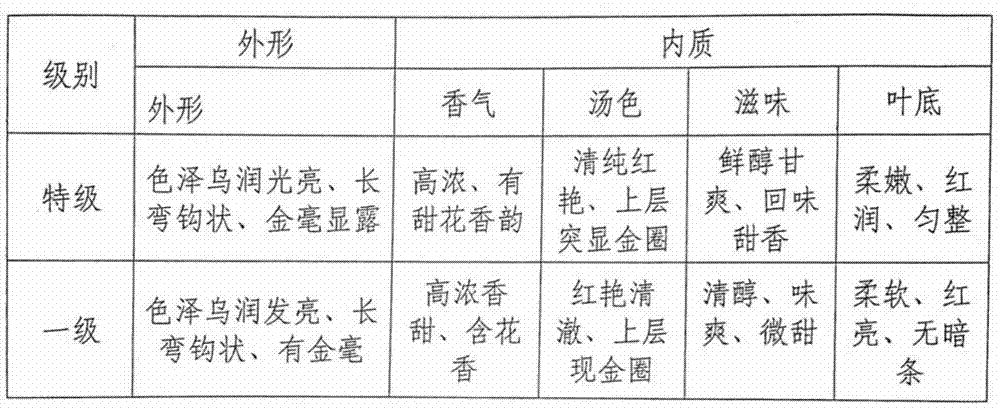 级别
外形
内质
外形
香气
汤色
滋味
叶底
特级
色泽乌润光亮、长
弯钩状、金毫显露
高浓、有
甜花香韵
清纯红
艳、上层
突显金圈
鲜醇甘
爽、回味
甜香
柔嫩、红
润、匀整
一级
色泽乌润发亮、长
弯钩状、有金毫
高浓香
甜、含花
香
红艳清
澈、上层
现金圈
清醇、味
爽、微甜
柔软、红
亮、无暗
条